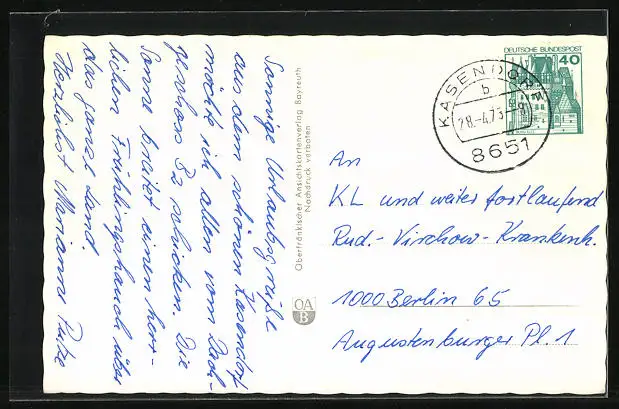 Sonnige Urlaubsgrüße
aus dem schönen Kasendorf
möchte ich allen vom Dach-
geschoss E2 schicken. Die
Sonne breitet einen herr-
lichen Frühlingshauch über
das ganze Land.
Herzlichst Marianne
Oberfränkischer Ansichtskartenverlag Bayreuth
Nachdruck verboten
OA
B
DEUTSCHE BUNDESPOST
40
KASENDORF
b
8651
An
KL und weiter fortlaufend
Rud.-Virchow-Krankenh.
1000 Berlin 65
Augustenburger Pl. 1